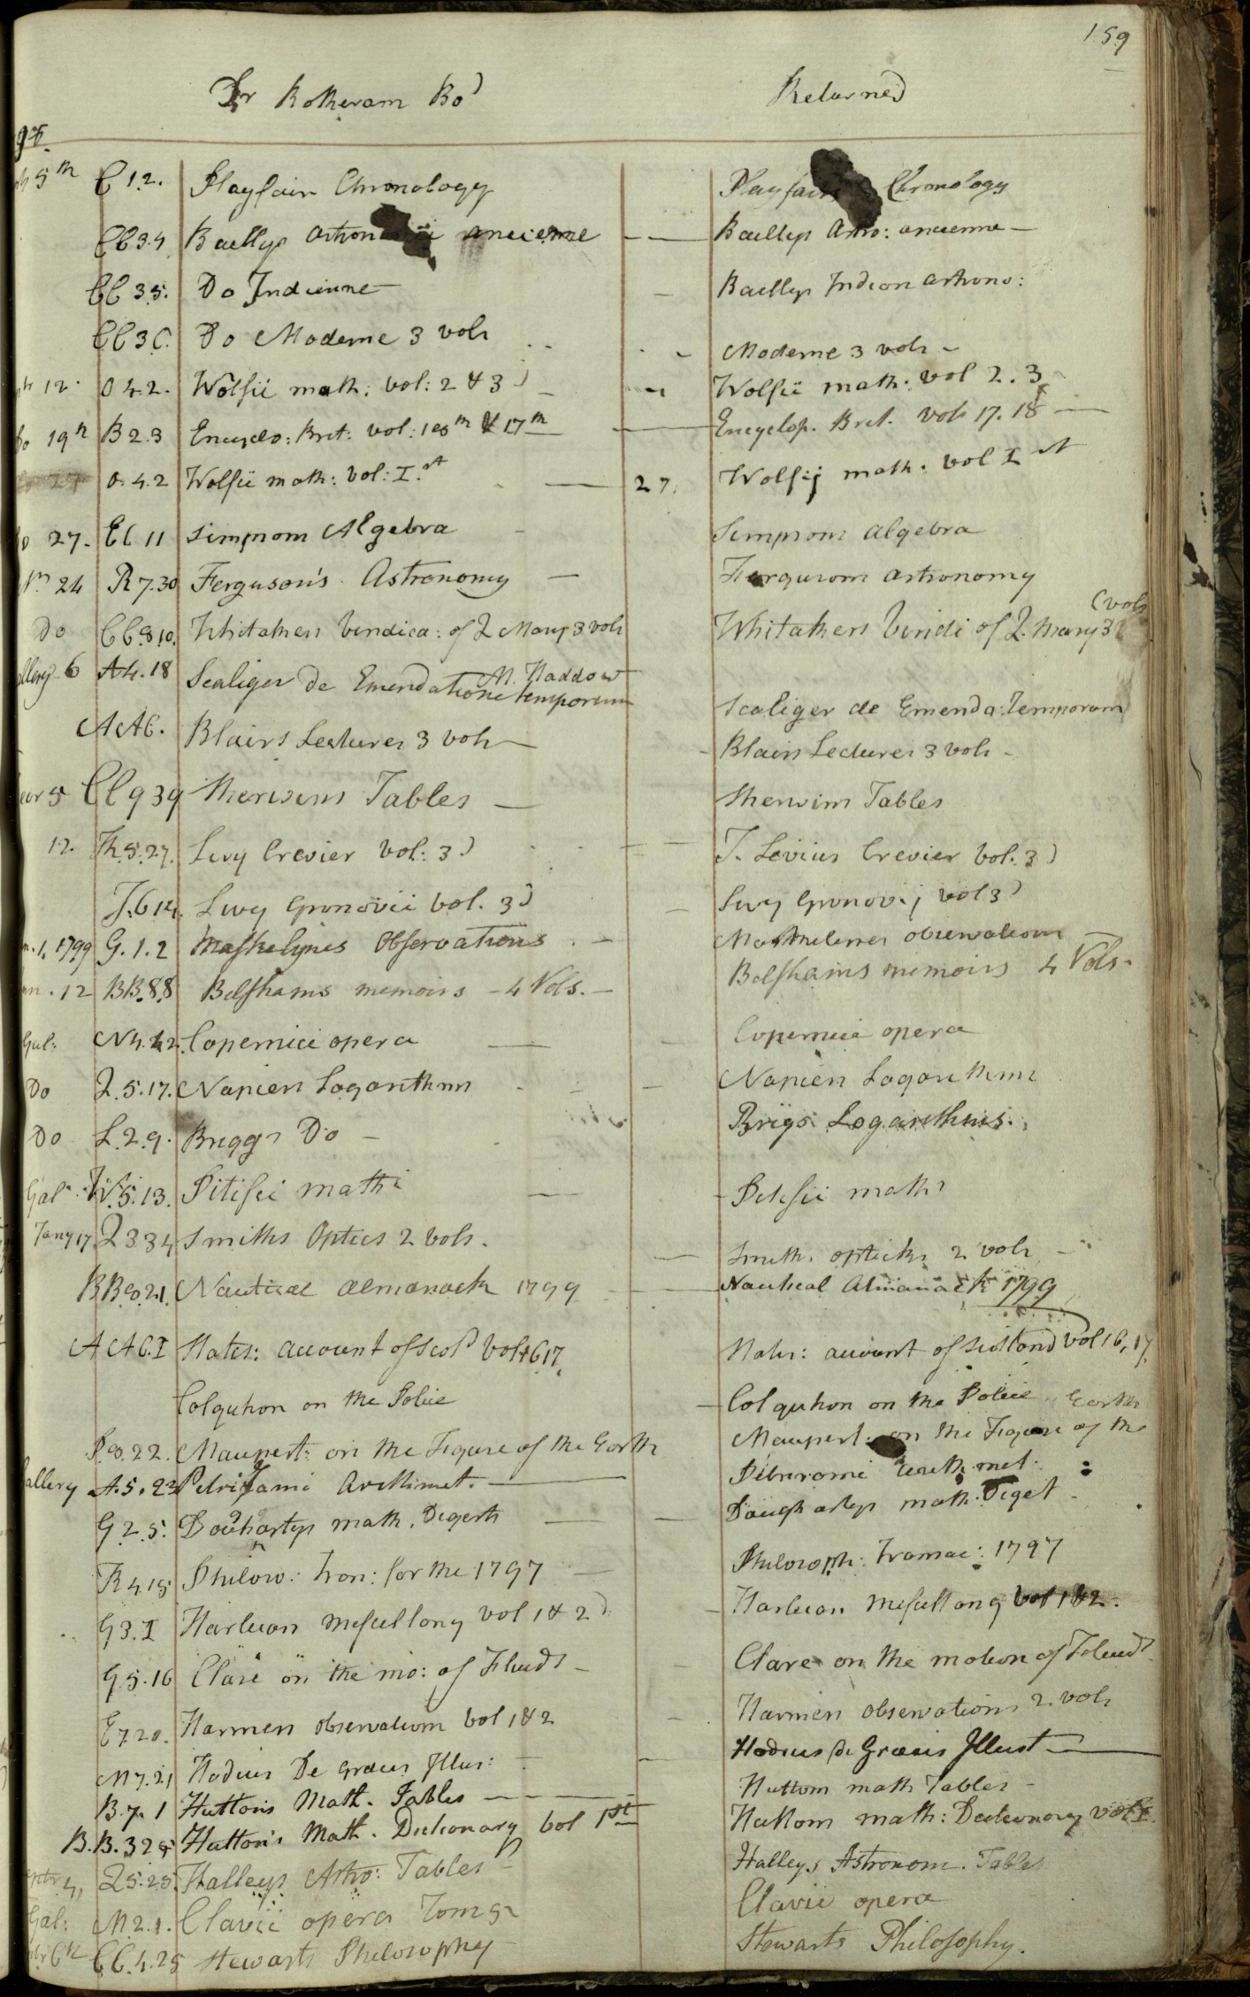 159
Dr Rotheram Bod Returned
5th CC 1.2. Playfair Chronology Playfair Chronology
CC 3.4 Baillys Astron ancienne Baillys Astro: ancienne
CC 3.5. Do Indienne Baillys Indion Astrono:
CC 3. Do Moderne 3 vols Moderne 3 vols
12. O 4.2. Wolfii math: vol: 2 & 3d Wolfii math: vol 2. 3
Do 19th B 2.3 Encyclo: Brit: vol: 18th & 17th Encyclop. Brit. vols 17. 18
27 O. 4.2 Wolfii math: vol: I.st 27. Wolfij math: vol I st
Do 27. EC 11 Simpsons Algebra Simpsons algebra
24 R 7.30 Ferguson's Astronomy Fergusons astronomy
Do CC 9 10. Whitakers Vindica: of Q Mary 3 vols Whitakers Vindi of Q. Mary 3 (vols
Gallery 6 A 4.18 Scaliger De Emendatione temporum Scaliger de Emenda: Temporum
M. Haddow
A A 6. Blairs Lectures 3 vols Blairs Lectures 3 vols
5 CC 9 39 Sherwins Tables Sherwins Tables
12. 5.27. Livy Crevier Vol: 3d T. Levius Crevier Vol: 3d
T.6 14. Livy Gronovii Vol. 3d Livy Gronovij vol 3d
1. 1799 G. 1. 2 Maskelynes Observations Maskelines observations
12 BB.8.8 Belshams memoirs - 4 Vols. Belshams memoirs 4 Vols.
Gal: N 4.22. Copernici opera Copernici opera
Do Q. 5. 17. Napiers Logarithms Napiers Logarithms
Do L. 2. 9. Briggs Do Brigs Logarithms.
Gal 5. 13. Pitisci math: Pitisci math:
Jany 17 Q 3 34 Smiths Optics 2 vols. Smiths opticks 2 vols
BB 9.21. Nautical almanack 1799 Nautical Almanack 1799
A A 6. I Statis: account of Scotd vol 16 17 Statis: account of Scotland vol 16, 17,
Colquhon on the Police Colquhon on the Police
P. 8. 22. Maupert: on the Figure of the Earth Maupert: on the Figure of the Earth
Gallery A. 5. 23 Petri Rami Arithmet. Petri rami arithmet:
G 2. 5. Douhartys math. Digests Daughartys math: Digest
R 4.15 Philoso: Tran: for the 1797 Philosoph: Transac: 1797
G 3. I Harleian Miscellony vol 1 & 2d Harleian Miscellony vol 1 & 2.
G 5. 16 Clare on the mo: of Fluids Clare on the motion of Fluids
E 7 20. Harmers Observations vol 1 & 2 Harmers observations 2 vols
M 7. 21 Hodius De Graecis Illus: Hodius de Graecis Illust
B. 7. 1 Huttons Math. Tables Huttons math Tables
B.B. 3 25 Hutton's Math. Dictionary vol 1st Huttons math: Dictionary vol I.
Q 5. 25. Halleys Astro: Tables Halleys Astronom. Tables
Gal: M 2. 1. Clavii opera Tom 5 Clavii opera
CC. 4. 25 Stewarts Philosophy Stewarts Philosophy.